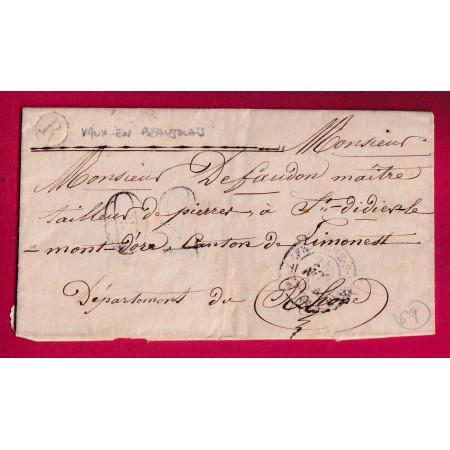 B
VAUX EN BEAUJOLAIS
Monsieur
Monsieur Defaudon maître
tailleur de pierres, à St. didier le
mont d'ore Canton de Limonest
Département du Rhône
69